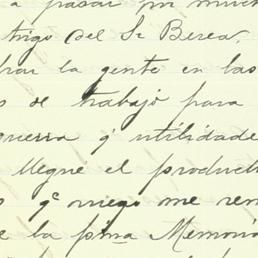 a pasar por much
trigo del Sr Berea,
rar la gente en las
s de trabajo para
guerra y utilidade
llegue el product
s qe ruego me rem
e la pma Memoria